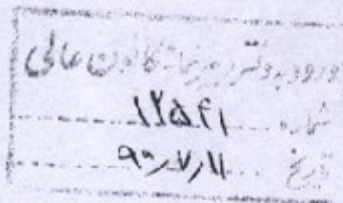 ورود به دفتر دبیرخانه کانون عالی
شماره ۱۲۵۴۱
تاریخ ۹۰/۷/۱۱